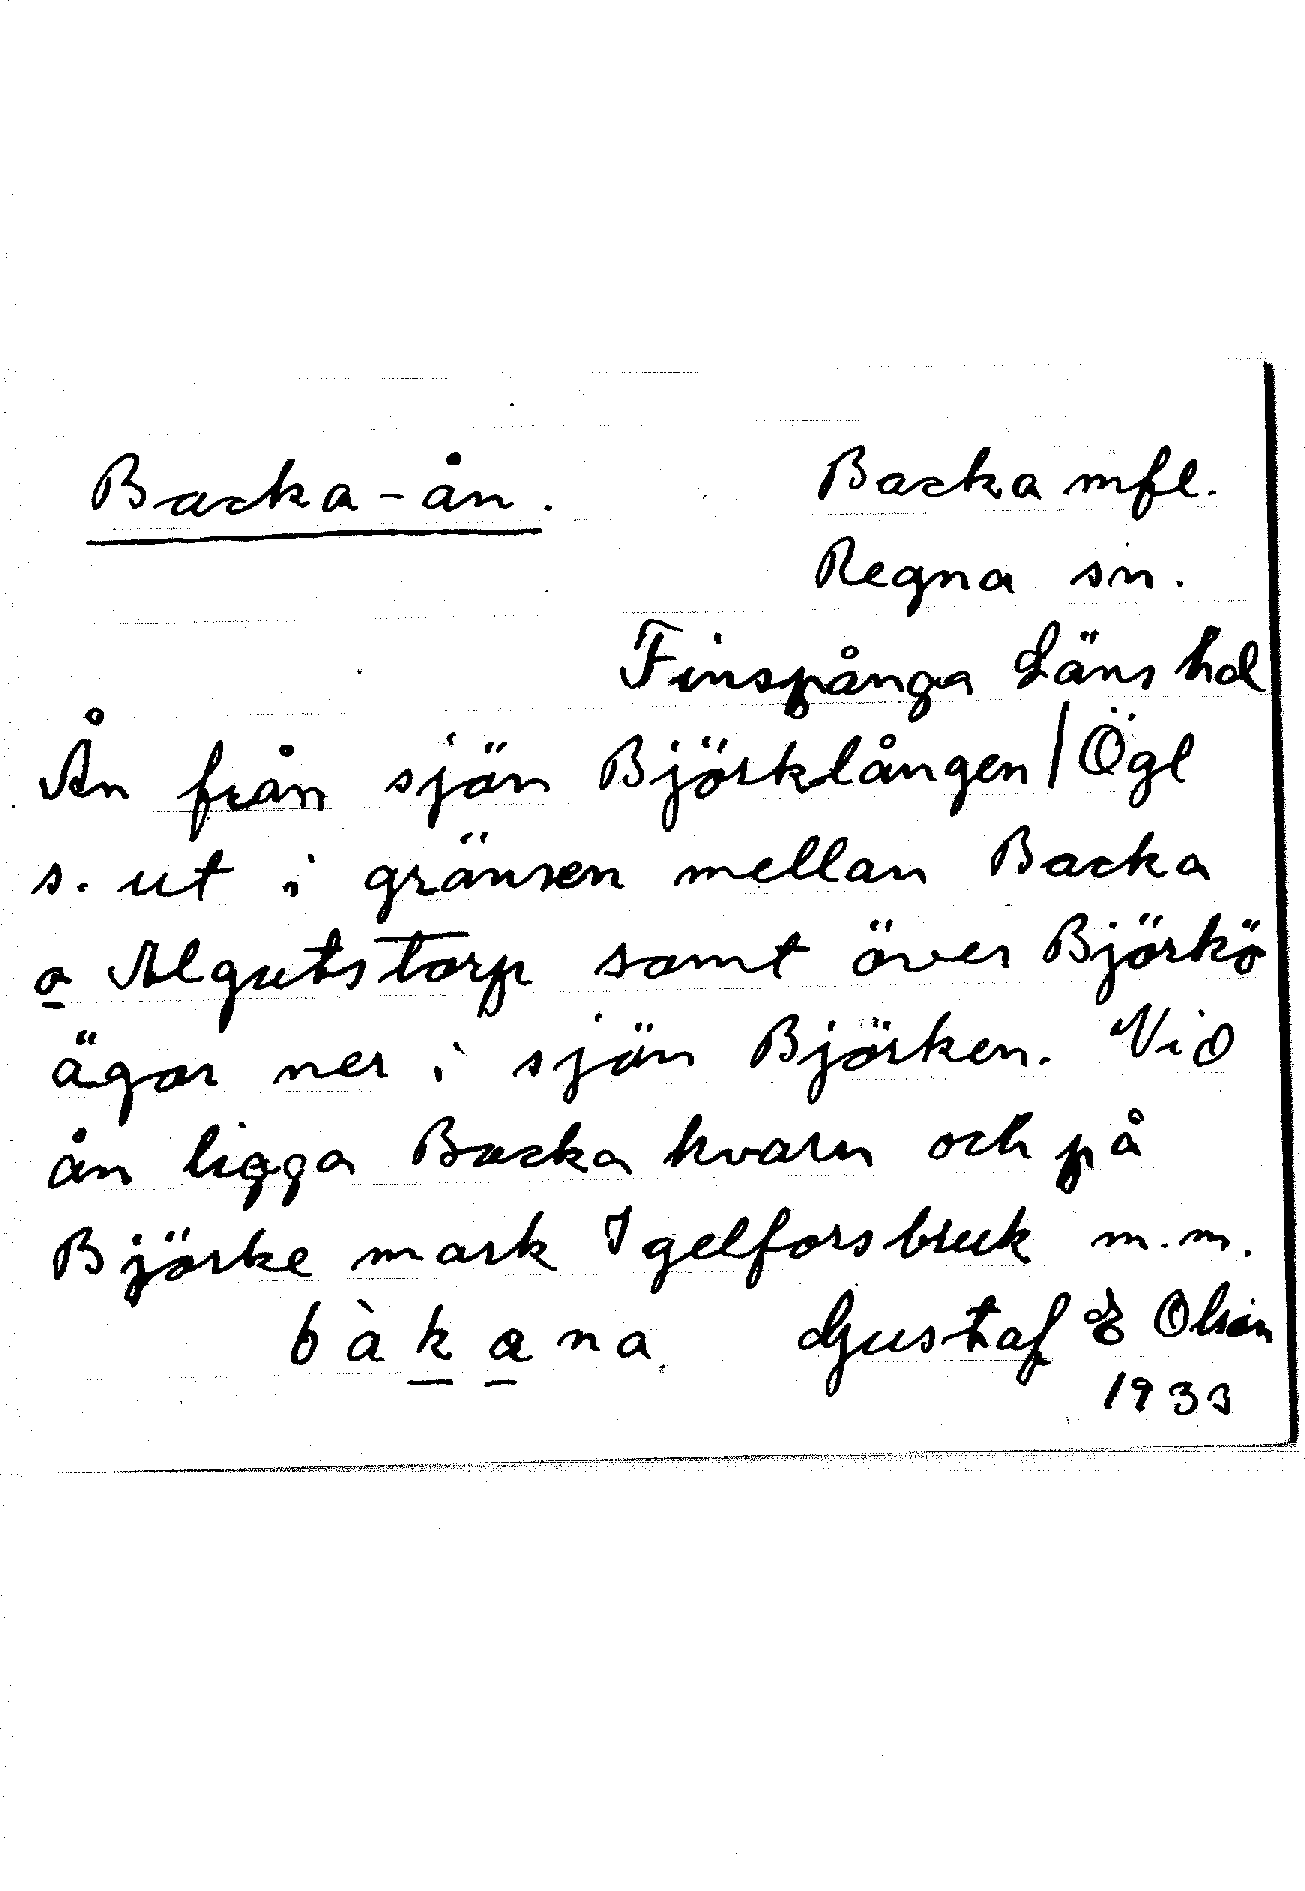 Backa-ån.
Backa mfl.
Regna sn.
Finspånga Läns hd
Ån från sjön Björklången / Ögl
s. ut i gränsen mellan Backa
o Algutstorp samt över Björkö
ägor ner i sjön Björken. Vid
ån ligga Backa kvarn och på
Björke mark Igelforsbruk m.m.
bàkana. Gustaf E Olson
1933